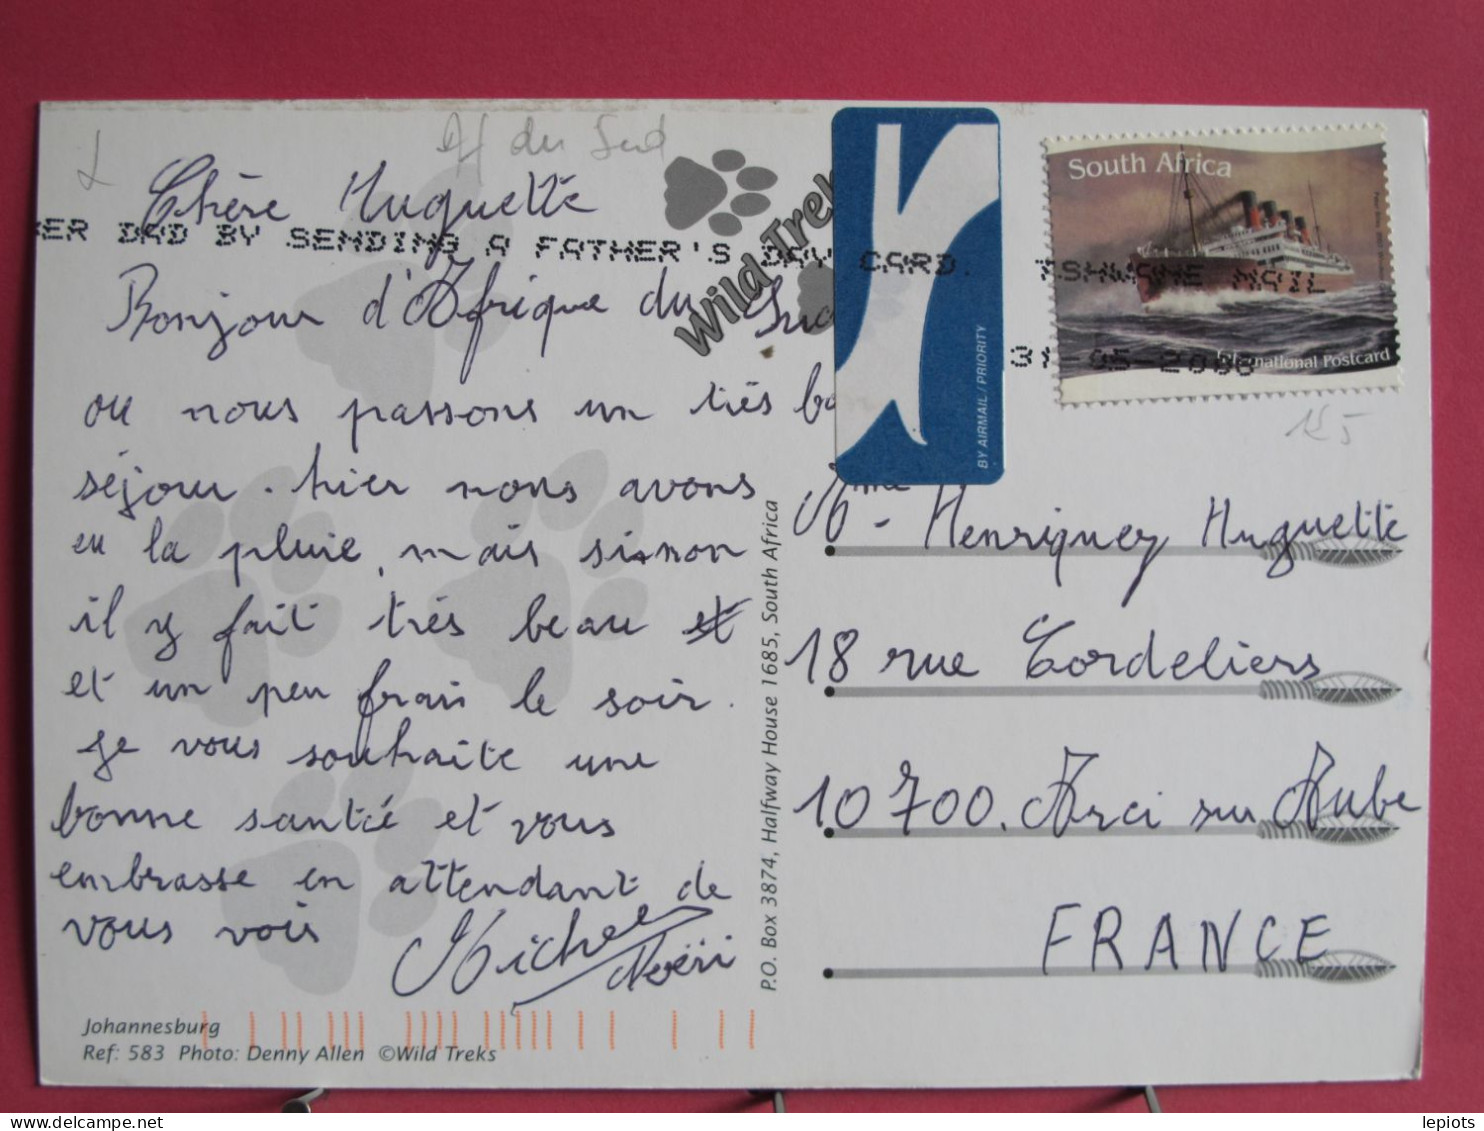 Af du Sud
Chère Huguette
ER DAD BY SENDING A FATHER'S DAY CARD.
TSHWANE MAIL
-05-2006
Wild Trek
South Africa
International Postcard
BY AIRMAIL / PRIORITY
Bonjour d'Afrique du Sud
ou nous passons un très bo
séjour. hier nous avons
eu la pluie, mais sinon
il y fait très beau et
et un peu frais le soir.
Je vous souhaite une
bonne santé et vous
embrasse en attendant de
vous voir Michel
Johannesburg
Ref: 583 Photo: Denny Allen ©Wild Treks
P.O. Box 3874, Halfway House 1685, South Africa
Mme Henriquey Huguette
18 rue Cordeliers
10700. Arci sur Aube
FRANCE
lepiots.net
lepiots